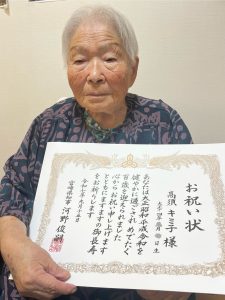 お祝い状
高須 キミ子 様
あなたは大正昭和平成令和を
健やかに過ごされ めでたく
百歳を迎えられました
心からお祝い申し上げます
とともにますますの御長寿
をお祈りします
宮崎県知事 河野俊嗣